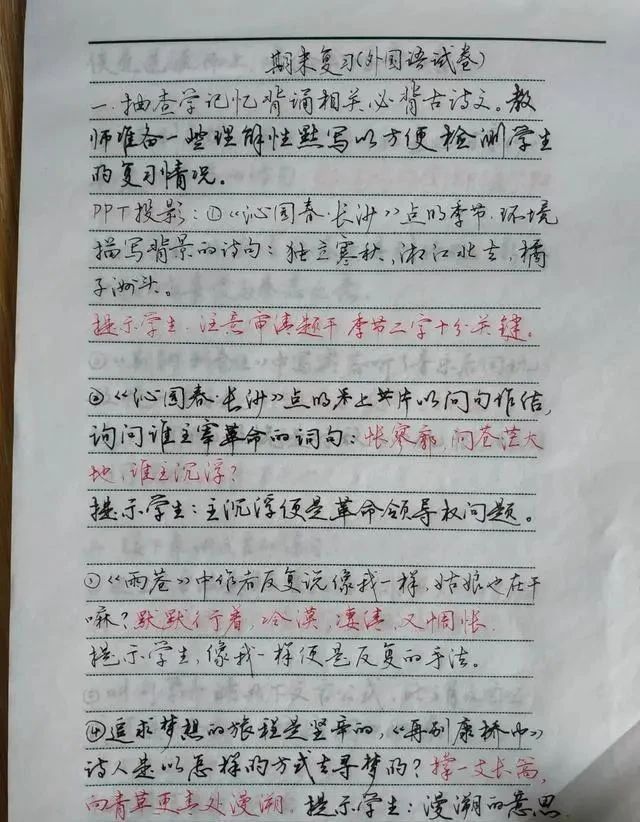 期末复习(外国语试卷)
一.抽查学记忆背诵相关必背古诗文。教
师准备一些理解性默写以方便检测学生
的复习情况。
PPT投影:①《沁园春·长沙》点明季节.环境
描写背景的诗句:独立寒秋,湘江北去,橘
子洲头。
提示学生.注意审清题干 季节二字十分关键。
②《沁园春·长沙》点明 上 片以问句作结,
询问谁主宰革命的词句:怅寥廓,问苍茫大
地,谁主沉浮?
提示学生:主沉浮便是革命领导权问题。
①《雨巷》中作者反复说像我一样,姑娘也在干
嘛?默默行着,冷漠,凄清,又惆怅.
提示学生,像我一样便是反复的手法。
④追求梦想的旅程是坚辛的,《再别康桥中》
诗人是以怎样的方式去寻梦的?撑一支长蒿,
向青草更青处漫溯.提示学生:漫溯的意思